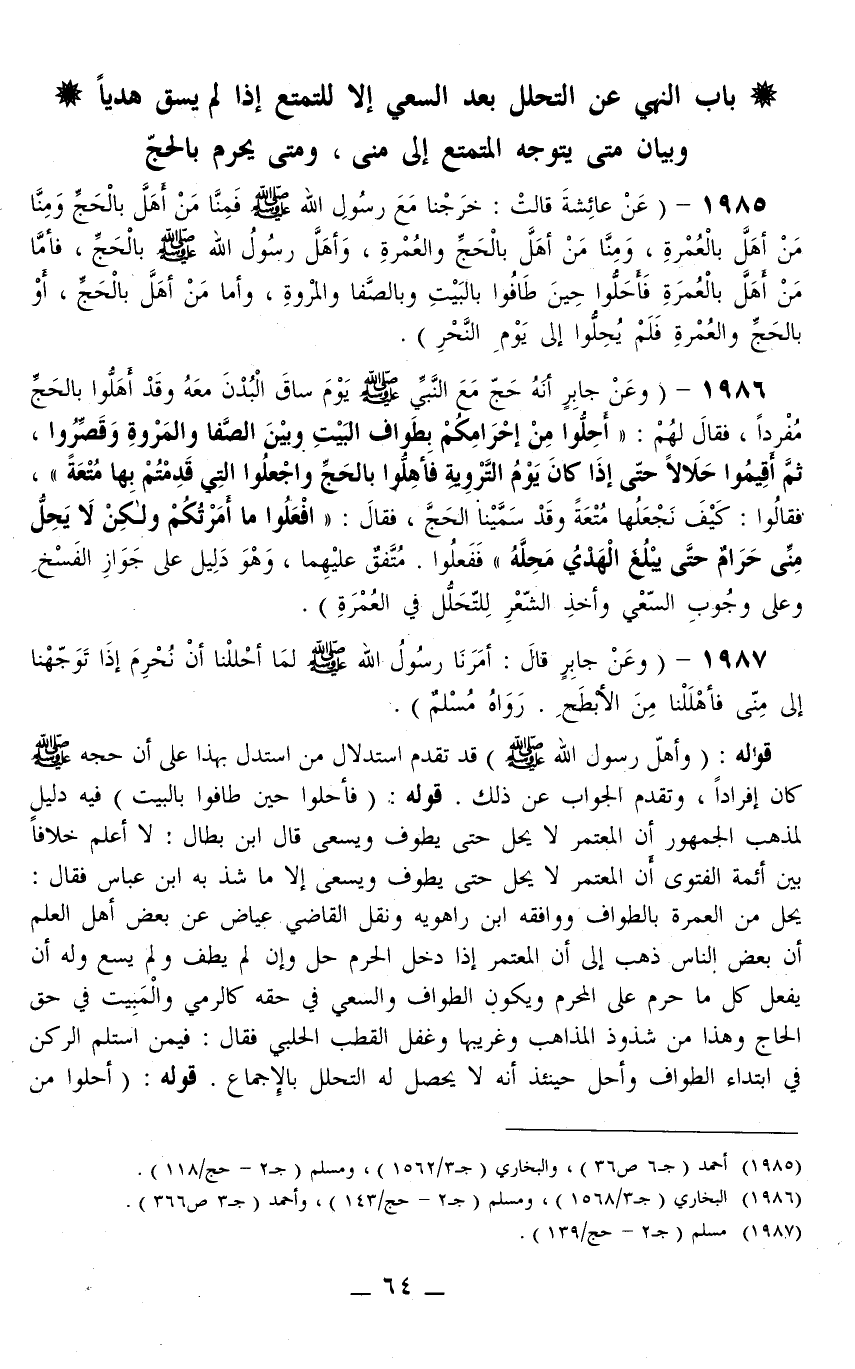 ❋ باب النهي عن التحلل بعد السعي إلا للتمتع إذا لم يسق هدياً ❋
وبيان متى يتوجه المتمتع إلى منى ، ومتى يحرم بالحجّ
١٩٨٥ - ( عَنْ عائِشةَ قالتْ : خرَجْنا مَعَ رسُولِ الله ﷺ فَمِنَّا مَنْ أَهَلَّ بالْحَجِّ وَمِنَّا
مَنْ أهَلَّ بالْعُمْرةِ ، وَمِنَّا مَنْ أهَلَّ بالْحَجِّ والعُمْرةِ ، وَأهَلَّ رسُولُ الله ﷺ بالْحَجِّ ، فأمَّا
مَنْ أَهَلَّ بالْعُمَرةِ فَأَحَلُّوا حِينَ طَافُوا بالبَيْتِ وبالصَّفا والمْروةِ ، وأما مَنْ أهَلَّ بالْحَجِّ ، أَوْ
بالحَجِّ والعُمْرةِ فَلَمْ يُحِلُّوا إلى يَوْمِ النَّحْرِ ) .
١٩٨٦ - ( وعَنْ جابِرٍ أنَهُ حَجّ مَعَ النَّبِيِّ ﷺ يَوْمَ ساقَ الْبُدْنَ معَهُ وقَدْ أَهَلُّوا بالحَجِّ
مُفْرداً ، فقالَ لهُمْ : « أَحِلُّوا مِنْ إحْرَامِكُمْ بِطَوافِ البَيْتِ وبيْنَ الصَّفا والمَرْوةِ وَقَصِّرُوا ،
ثمَّ أَقِيمُوا حَلَالاً حتّى إذَا كانَ يَوْمُ التَّرْويةِ فأهِلُّوا بالحَجِّ واجْعلُوا التي قَدِمْتُمْ بِها مُتْعَةً » ،
فقالُوا : كَيْفَ نَجْعَلُها مُتْعَةً وقَدْ سَمَّيْنا الحَجَّ ، فقالَ : « افْعَلُوا ما أَمَرْتُكُمْ ولٰكِنْ لَا يَحِلُّ
مِنِّى حَرَامٌ حتَّى يبْلُغَ الْهَدْيُ مَحِلَّهُ » فَفَعلُوا . مُتَّفقٌ عليْهِما ، وَهْوَ دَلِيل على جَوَازِ الفَسْخِ
وعلى وجُوبِ السّعْي وأخذِ الشّعْرِ لِلتّحَلُّل في العُمْرَةِ ) .
١٩٨٧ - ( وعَنْ جابِرٍ قالَ : أمَرَنَا رسُولُ الله ﷺ لمَا أحْللْنا أنْ نُحْرِمَ إذَا تَوَجّهْنا
إلى مِنّى فأهْلَلْنا مِنَ الأبْطَحِ . رَوَاهُ مُسْلمٌ ) .
قوله : ( وأهلّ رسول الله ﷺ ) قد تقدم استدلال من استدل بهذا على أن حجه ﷺ
كان إفراداً ، وتقدم الجواب عن ذلك . قوله : ( فأحلوا حين طافوا بالبيت ) فيه دليل
لمذهب الجمهور أن المعتمر لا يحل حتى يطوف ويسعى قال ابن بطال : لا أعلم خلافاً
بين أئمة الفتوى أن المعتمر لا يحل حتى يطوف ويسعى إلا ما شذ به ابن عباس فقال :
يحل من العمرة بالطواف ووافقه ابن راهويه ونقل القاضي عياض عن بعض أهل العلم
أن بعض الناس ذهب إلى أن المعتمر إذا دخل الحرم حل وإن لم يطف ولم يسع وله أن
يفعل كل ما حرم على المحرم ويكون الطواف والسعي في حقه كالرمي والْمَبِيت في حق
الحاج وهذا من شذوذ المذاهب وغريبها وغفل القطب الحلبي فقال : فيمن استلم الركن
في ابتداء الطواف وأحل حينئذ أنه لا يحصل له التحلل بالإجماع . قوله : ( أحلوا من
(١٩٨٥) أحمد ( جـ٦ ص٣٦ ) ، والبخاري ( جـ١٥٦٢/٣ ) ، ومسلم ( جـ٢ - حج/١١٨ ) .
(١٩٨٦) البخاري ( جـ١٥٦٨/٣ ) ، ومسلم ( جـ٢ - حج/١٤٣ ) ، وأحمد ( جـ٣ ص٣٦٦ ) .
(١٩٨٧) مسلم ( جـ٢ - حج/١٣٩ ) .
ـ ٦٤ ـ